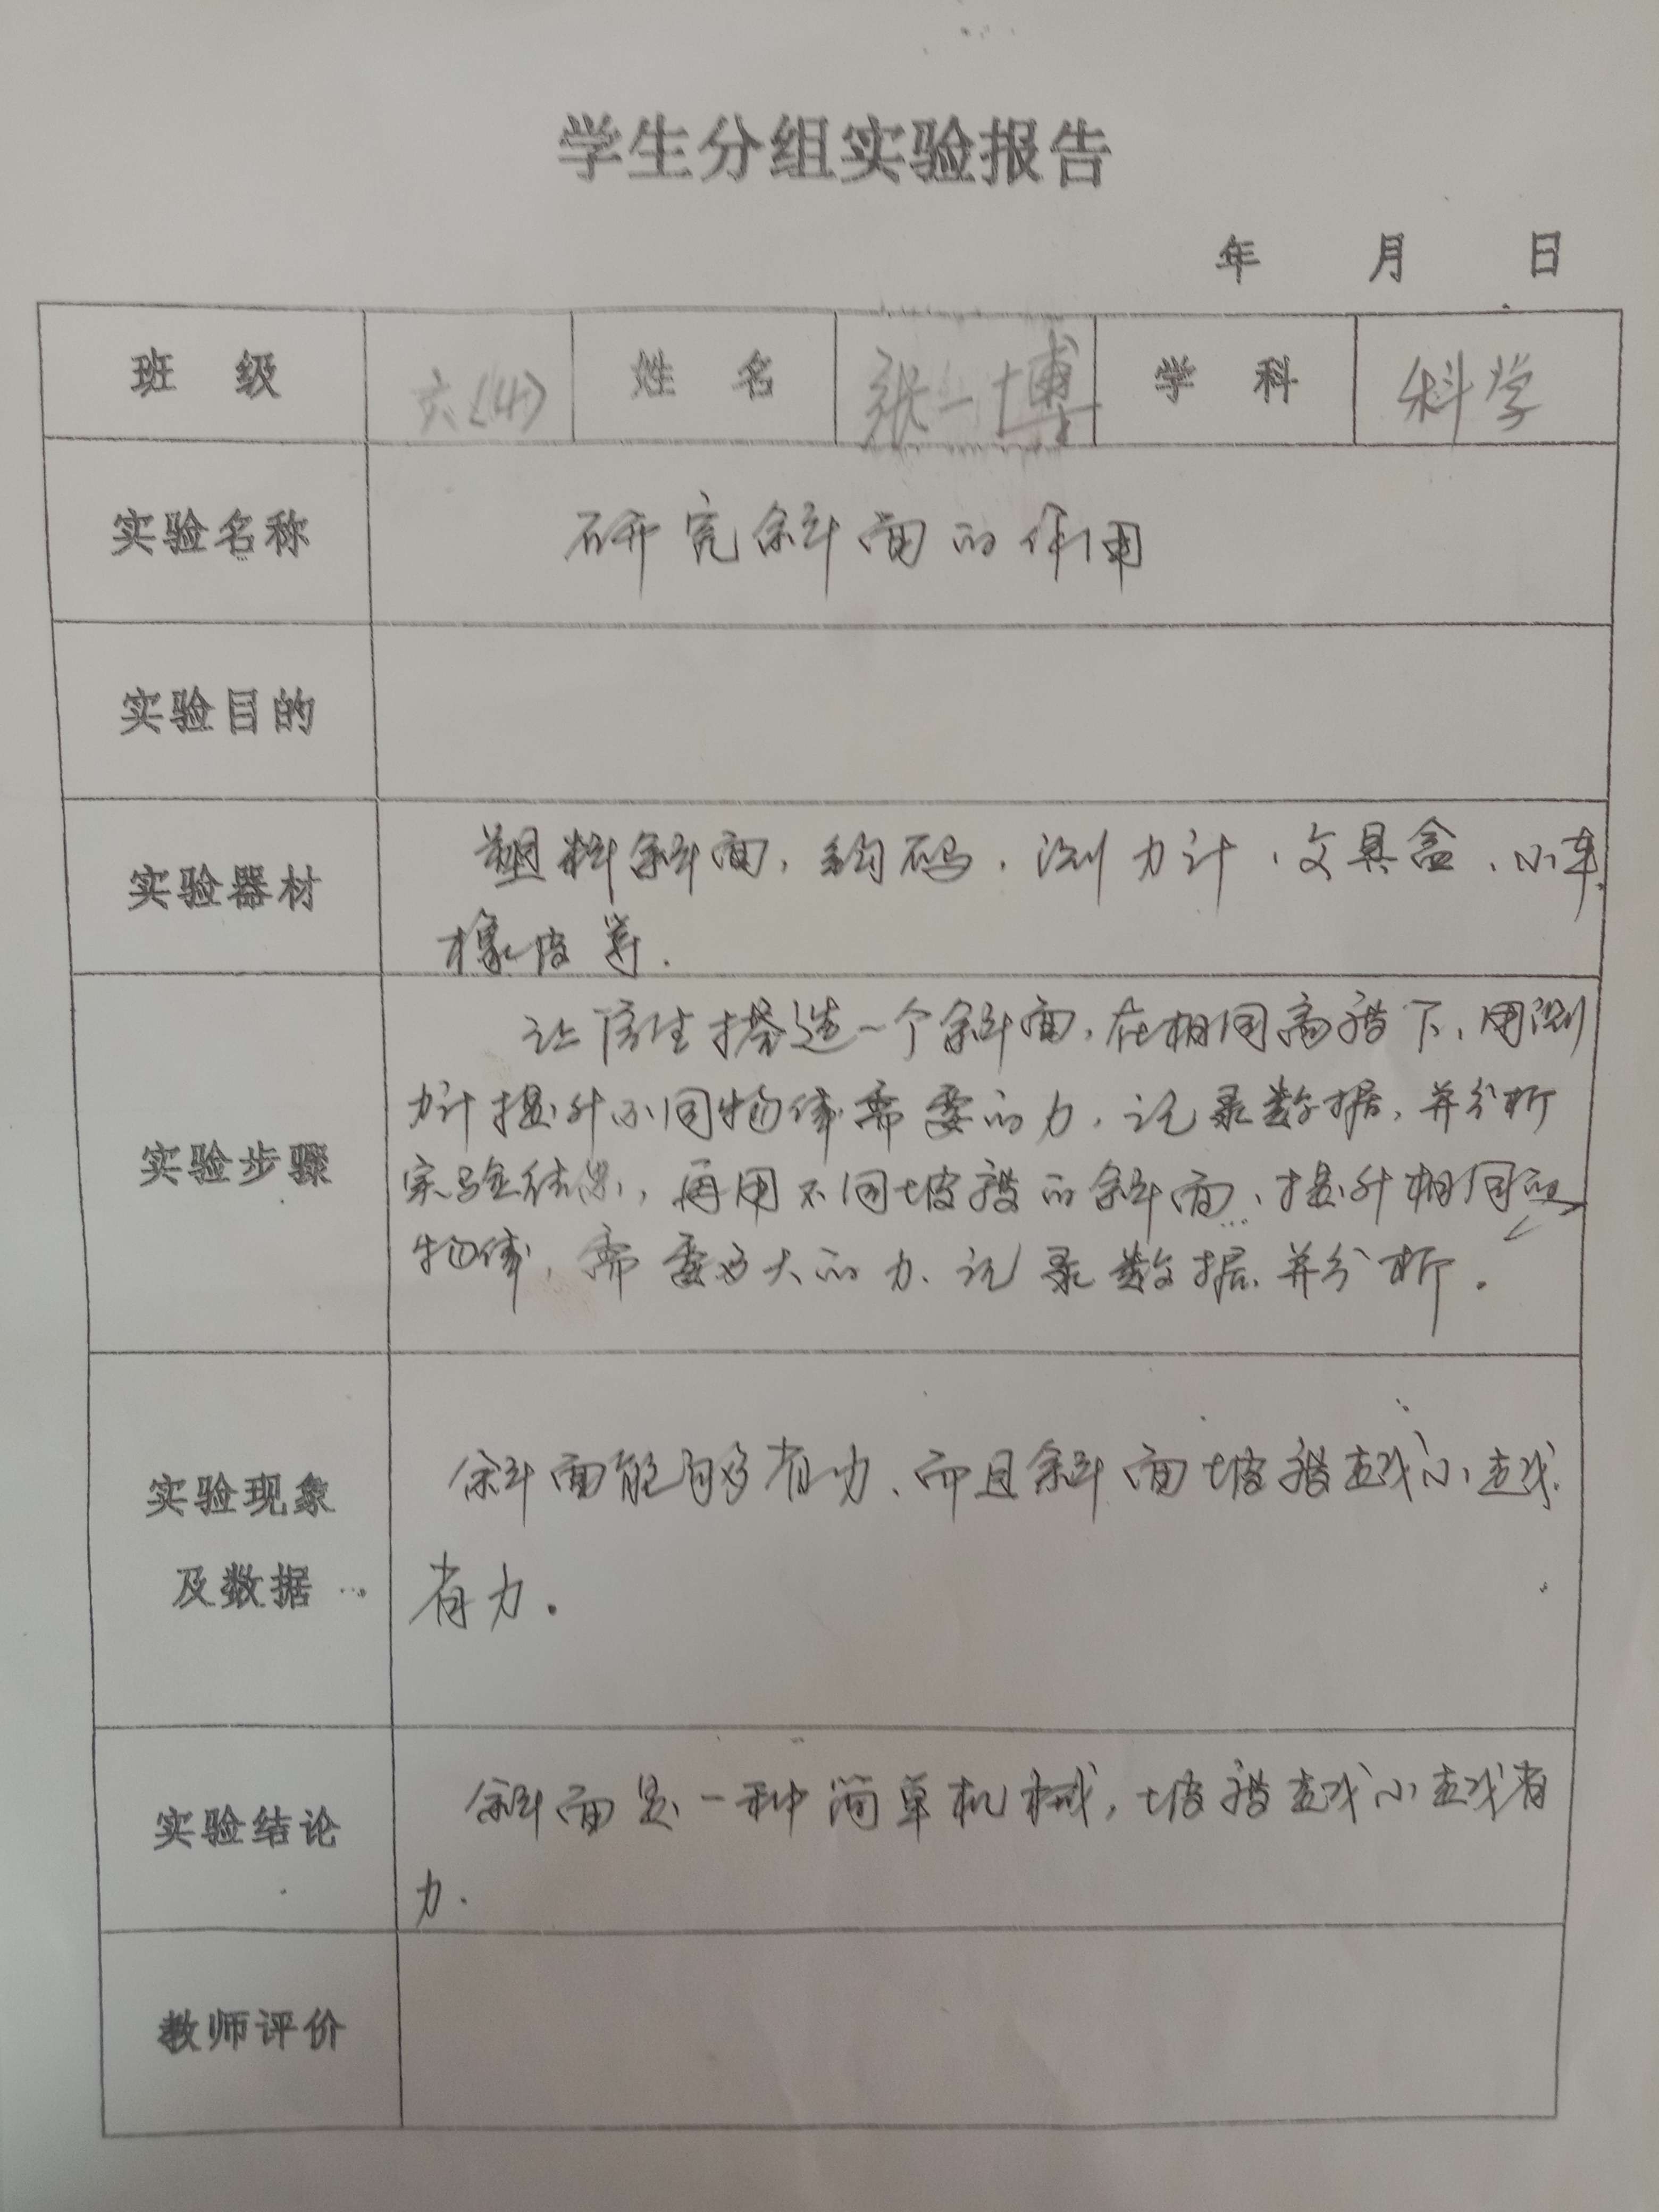 学生分组实验报告
年 月 日
班 级 六(4) 姓 名 张一博 学 科 科学
实验名称 研究斜面的作用
实验目的
实验器材 塑料斜面、钩码、测力计、文具盒、小车、
橡皮等.
实验步骤 让学生搭造一个斜面,在相同高度下,用测
力计提升不同物体需要的力,记录数据,并分析
实验结果,再用不同坡度的斜面,提升相同的
物体,需要多大的力、记录数据、并分析.
实验现象
及数据 斜面能够省力、而且斜面坡度越小越
省力.
实验结论 斜面是一种简单机械,坡度越小越省
力.
教师评价